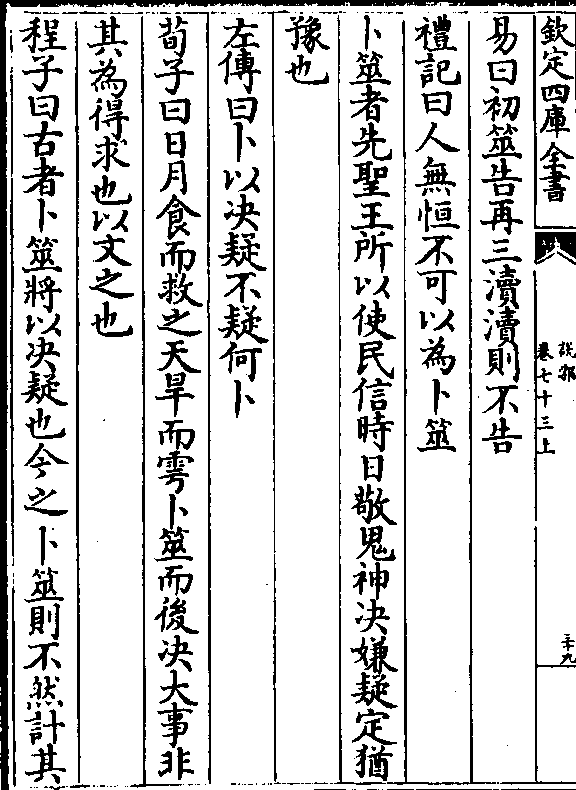 欽定四庫全書
說郛
卷七十三上
三十九
易曰初筮告再三瀆瀆則不告
禮記曰人無恒不可以為卜筮
卜筮者先聖王所以使民信時日敬鬼神决嫌疑定猶
豫也
左傳曰卜以决疑不疑何卜
荀子曰日月食而救之天旱而雩卜筮而後决大事非
其為得求也以文之也
程子曰古者卜筮將以决疑也今之卜筮則不然計其